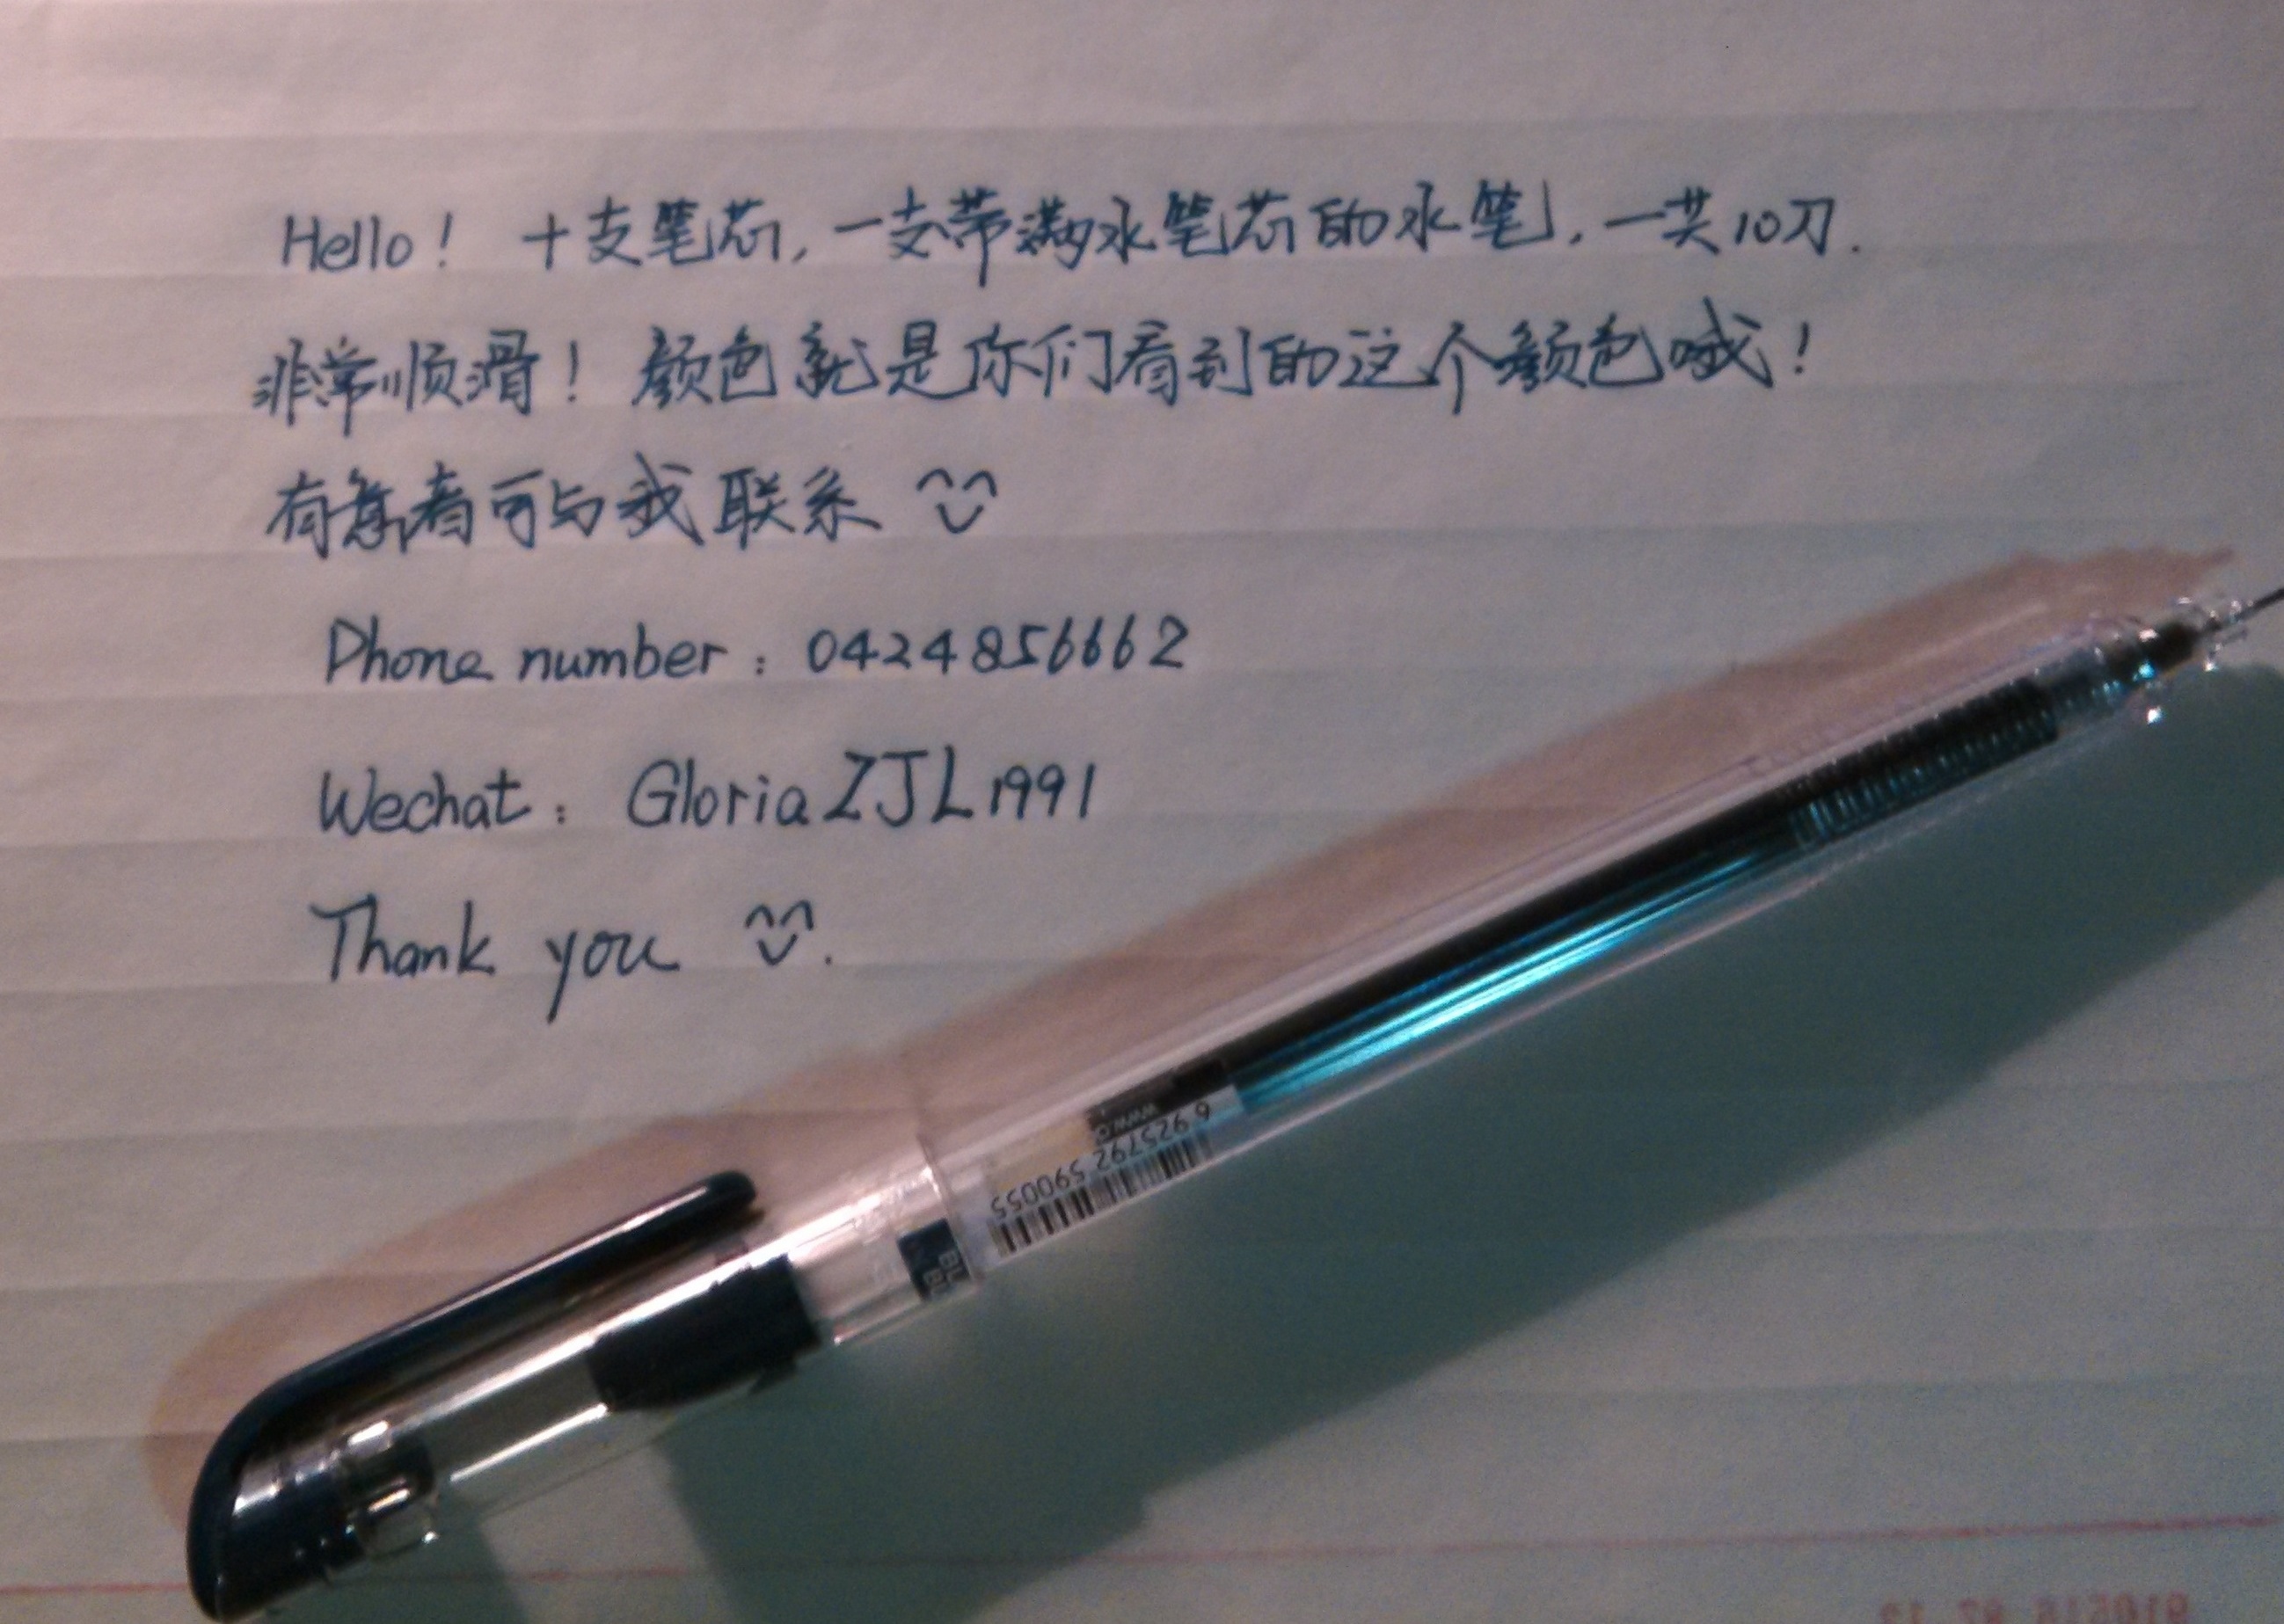 Hello! 十支笔芯,一支带满水笔芯的水笔,一共10刀.
非常顺滑! 颜色就是你们看到的这个颜色哦!
有意者可与我联系
Phone number: 0424856662
Wechat: GloriaZJL1991
Thank you
6 925792 590055
www.c